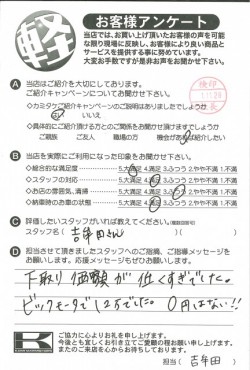 軽
お客様アンケート
当店では、お買い上げ頂いたお客様の声を可能な
限り現場に反映し、お客様により良い商品と
サービスを提供する事に努めています。
大変お手数ですが是非お声をお聞かせ下さい。
A 当店はご紹介を大切にしております。
ご紹介キャンペーンについてお聞かせ下さい。
◇カミタケご紹介キャンペーンのご説明はありましたでしょうか
はい いいえ
◇具体的にご紹介頂ける方とのご関係をお聞かせ頂けますでしょうか
ご親族 ご友人 職場の方 機会があれば紹介したい
B 当店を実際にご利用になった印象をお聞かせ下さい。
◇総合的な満足度 5.大満足 4.満足 3.ふつう 2.やや不満 1.不満
◇スタッフの対応 5.大満足 4.満足 3.ふつう 2.やや不満 1.不満
◇お店の雰囲気、清掃 5.大満足 4.満足 3.ふつう 2.やや不満 1.不満
◇納車時のお車の状態 5.大満足 4.満足 3.ふつう 2.やや不満 1.不満
C 評価したいスタッフがいれば教えてください。(複数回答可)
スタッフ名 吉牟田さん
D 担当させて頂きましたスタッフへのご指摘、ご指導メッセージを
お願いします。応援メッセージもぜひお願いします。
下取り価額が低くすぎでした。
ビックモータで12万でした。0円はない!!
K
ご協力に心よりお礼を申し上げます。
今後とも宜しくお引き立てご愛顧の程お願い申し上げます。
またのご来店を心からお待ちしております。
担当( 吉牟田 )